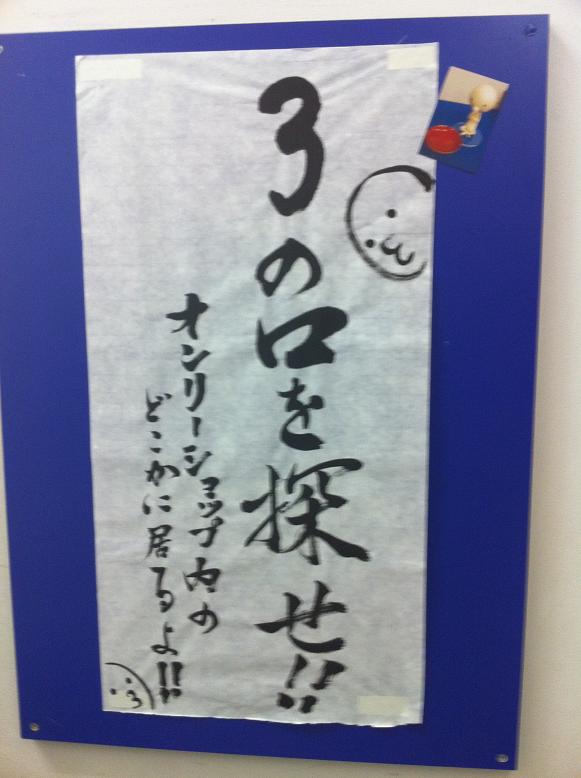 3の口を探せ!!
オンリーショップ内の
どこかに居るよ!!